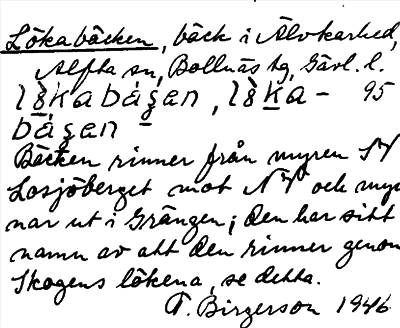 Lökabäcken, bäck i Älvkarhed,
Alfta sn, Bollnäs tg, Gävl. l.
Bäcken rinner från myren
Losjöberget mot NV och myn-
nar ut i Grängen; den har sitt
namn av att den rinner genom
Skogens lökena, se detta.
T. Birgerson 1946
95